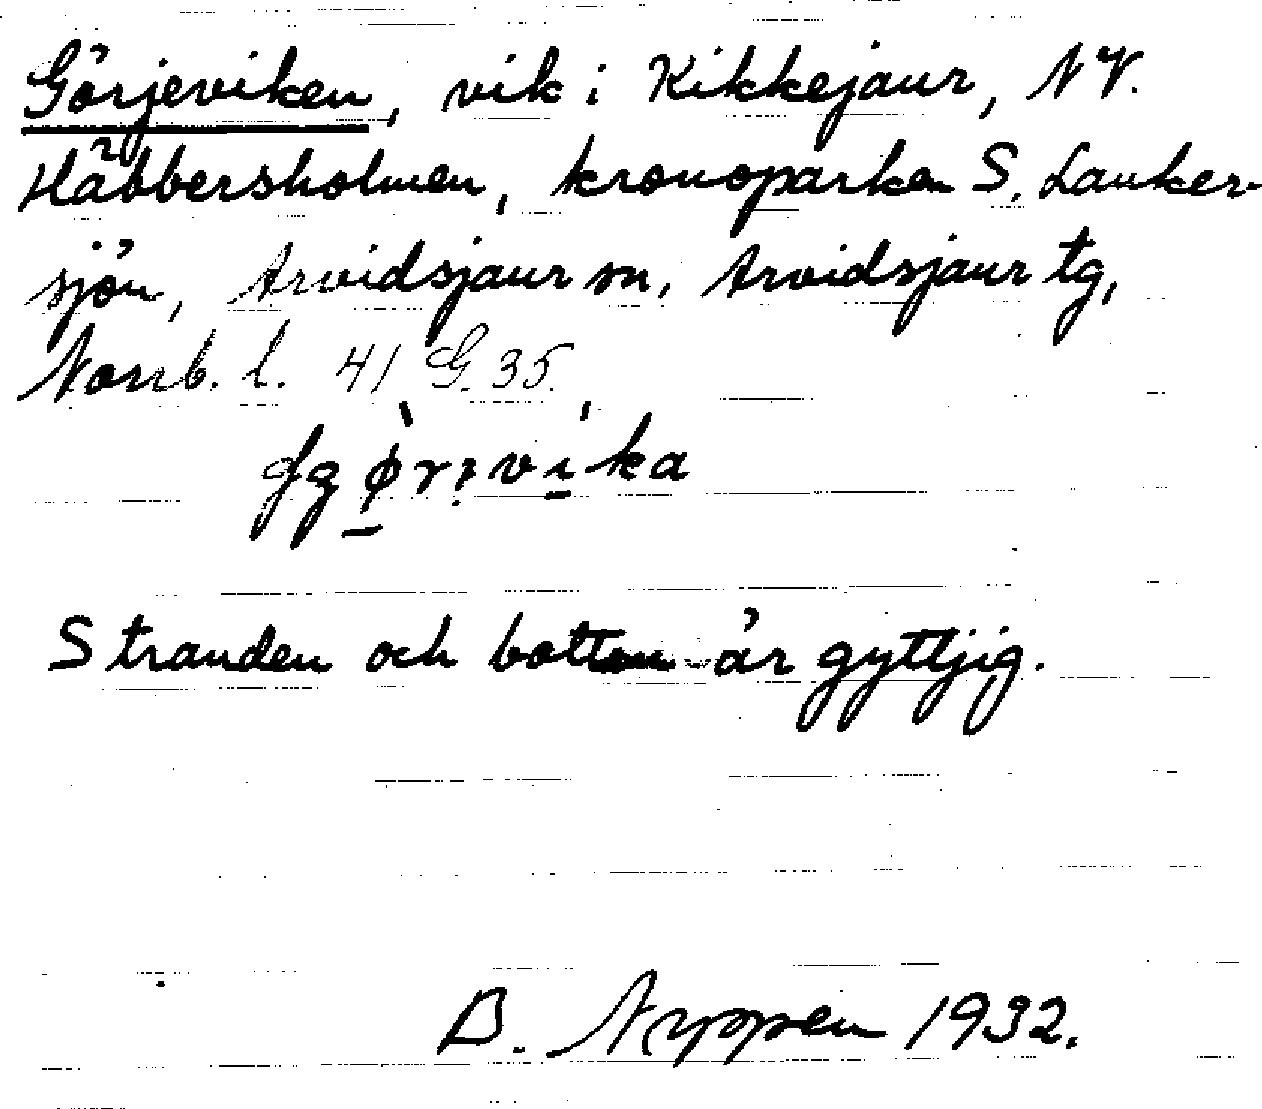 Görjeviken, vik i Kikkejaur, NV.
Häbbersholmen, kronoparken S. Lauker-
sjön, Arvidsjaur sn, Arvidsjaur tg,
Norrb. l. 41 G. 35.
Stranden och botten är gyttjig.
B. Nyppen 1932.